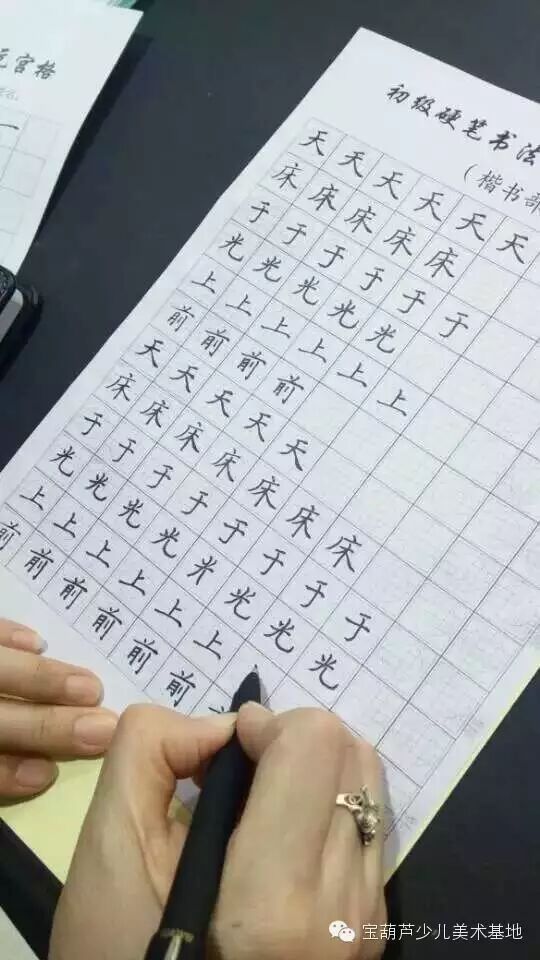 宫格
初级硬笔书法
（楷书部
天天天天天天
床床床床床
于于于于于于
光光光光光
上上上上上上
前前前前
天天天天天
床床床床床床床
于于于于于于于于
光光光光光光光光
上上上上上上
前前前前前前
宝葫芦少儿美术基地